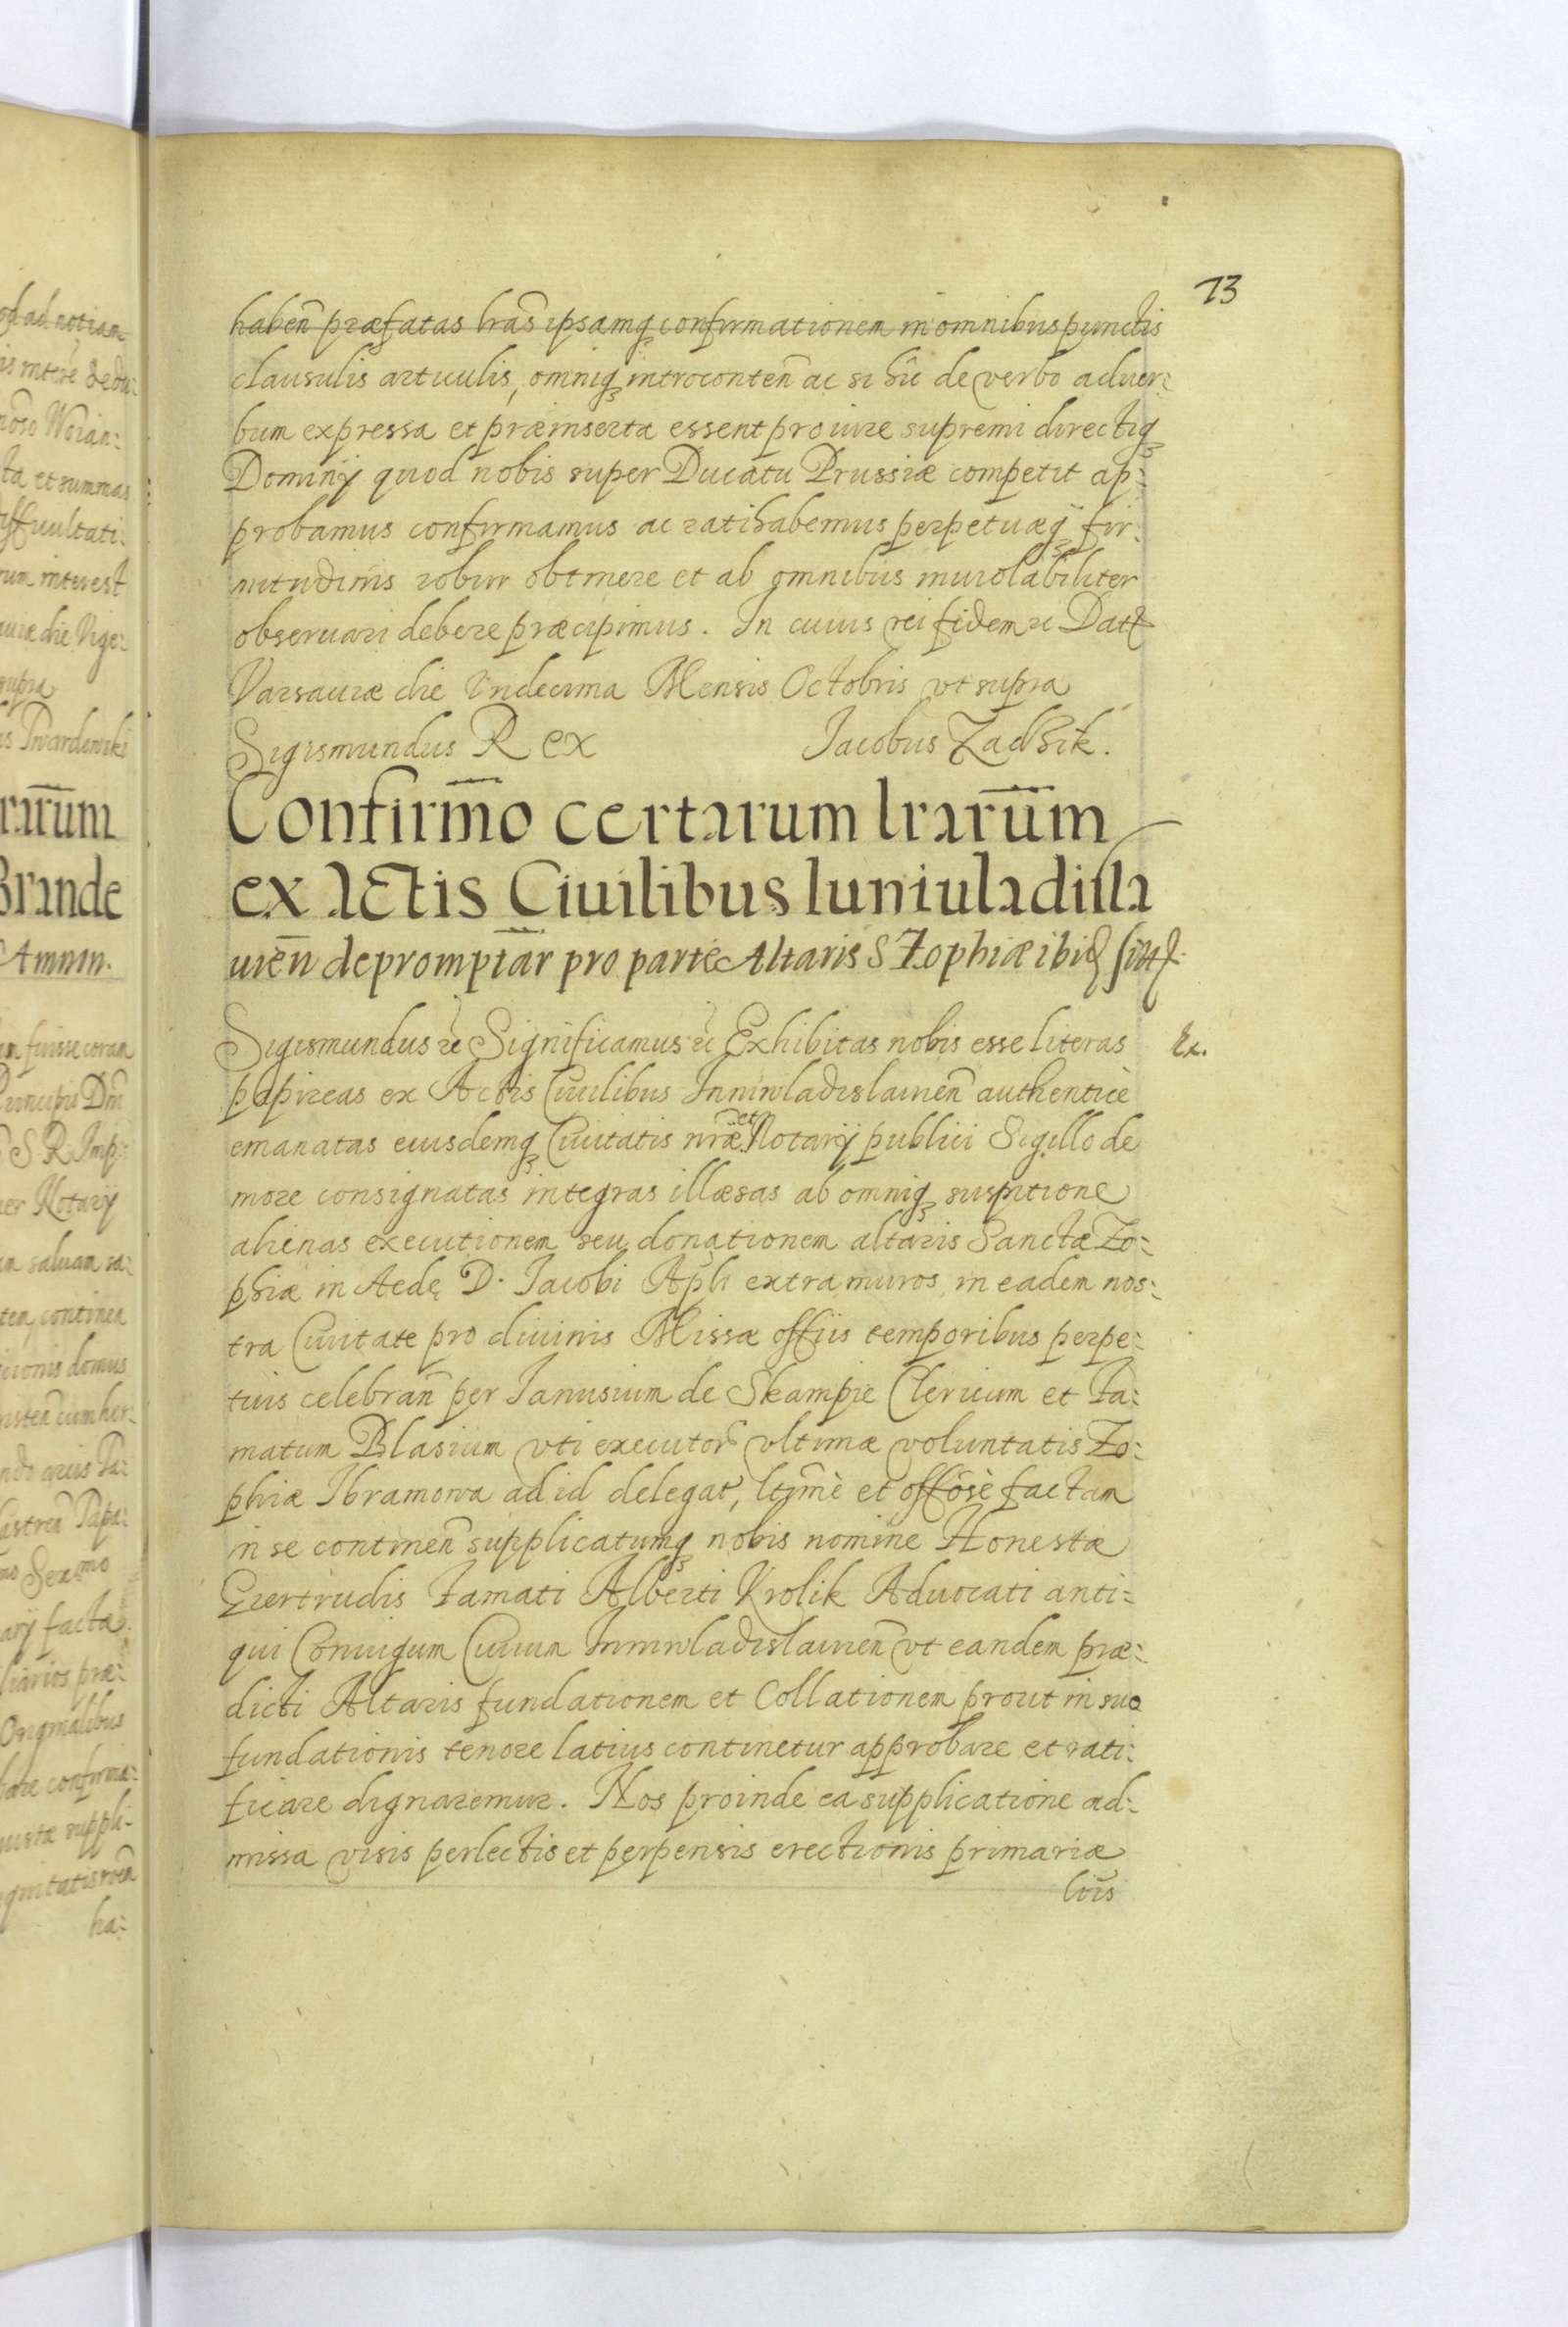 13
haben̄ præfatas lr̄as ipsamq̨ confirmationem in omnibus punctis
clausulis articulis, omniq̨ introconten̄ ac si hic de verbo ad ver:
bum expressa et præinserta essent pro iure supremi directiq̨
Dominÿ quod nobis super Ducatu Prussiæ competit ap:
probamus confirmamus ac ratihabemus perpetuæq̨ fir:
mitudinis robur obtinere et ab omnibus inuiolabiliter
obseruari debere præcipimus. In cuius rei fidem &c Datt
Varsauiæ die Vndecima Mensis Octobris vt supra
Sigismundus Rex Jacobus Zadzik.
Confirmo̅ certarum lrarum̅
ex Actis Ciuilibus Iuniuladisla
uien̄ depromptar̄ pro parte Altaris S Zophiæ ibid sitt
Sigismundus &c Significamus &c Exhibitas nobis esse literas
Ex.
papireas ex Actis Ciuilibus Iuniwladislauien̄ authenticè
emanatas eiusdemq̨ Ciuitatis nr̄æ et Notarÿ publici Sigillo de
more consignatas integras illæsas ab omniq̨ suspitione
alienas executionem seu donationem altaris Sanctæ Zo:
phiæ in Aede D. Iacobi Apli extra muros in eadem nos:
tra Ciuitate pro diuinis Missæ offiis temporibus perpe:
tuis celebran̄ per Ianusium de Skampie Clericum et Fa:
matum Blasium vti executor̄ vltimæ voluntatis Zo:
phiæ Ibramowa ad id delegat, ltim̄è et offōsè factam
in se continen̄ supplicatumq̨ nobis nomine Honestæ
Gertrudis Famati Alberti Krolik Aduocati anti:
qui Coniugum Ciuium Iuniwladislauien̄ vt eandem præ:
dicti Altaris fundationem et Collationem prout in suo
fundationis tenore latius continetur approbare et rati:
ficare dignaremur. Nos proinde ea supplicatione ad:
missa visis perlectis et perpensis erectionis primariæ
lr̄is